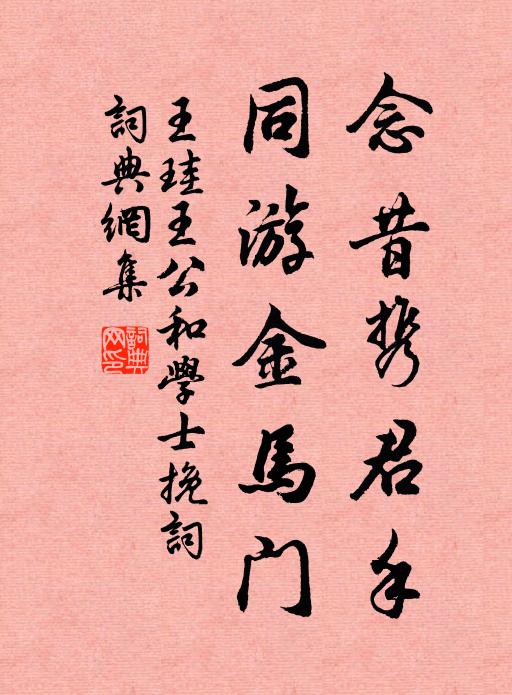 念昔携君手
同游金馬门
王珪王公和學士挽詞
詞典網集
詞典网印